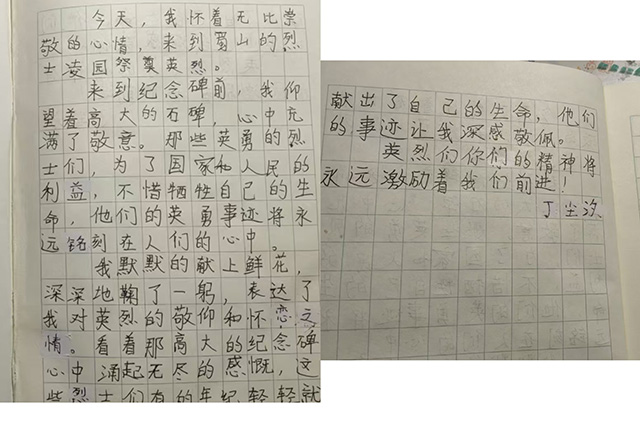 今天，我怀着无比崇
敬的心情，来到蜀山的烈
士凌园祭奠英烈。
来到纪念碑前，我仰
望着高大的石碑，心中充
满了敬意。那些英勇的烈
士们，为了国家和人民的
利益，不惜牺牲自己的生
命，他们的英勇事迹将永
远铭刻在人们的心中。
我默默的献上鲜花，
深深地鞠了一躬，表达了
我对英烈的敬仰和怀恋之
情。看着那高大的纪念碑
心中涌起无尽的感慨，这
些烈士们有的年纪轻轻就
献出了自己的生命，他们
的事迹让我深感敬佩。
英烈们你们的精神将
永远激励着我们前进！
丁尘汐